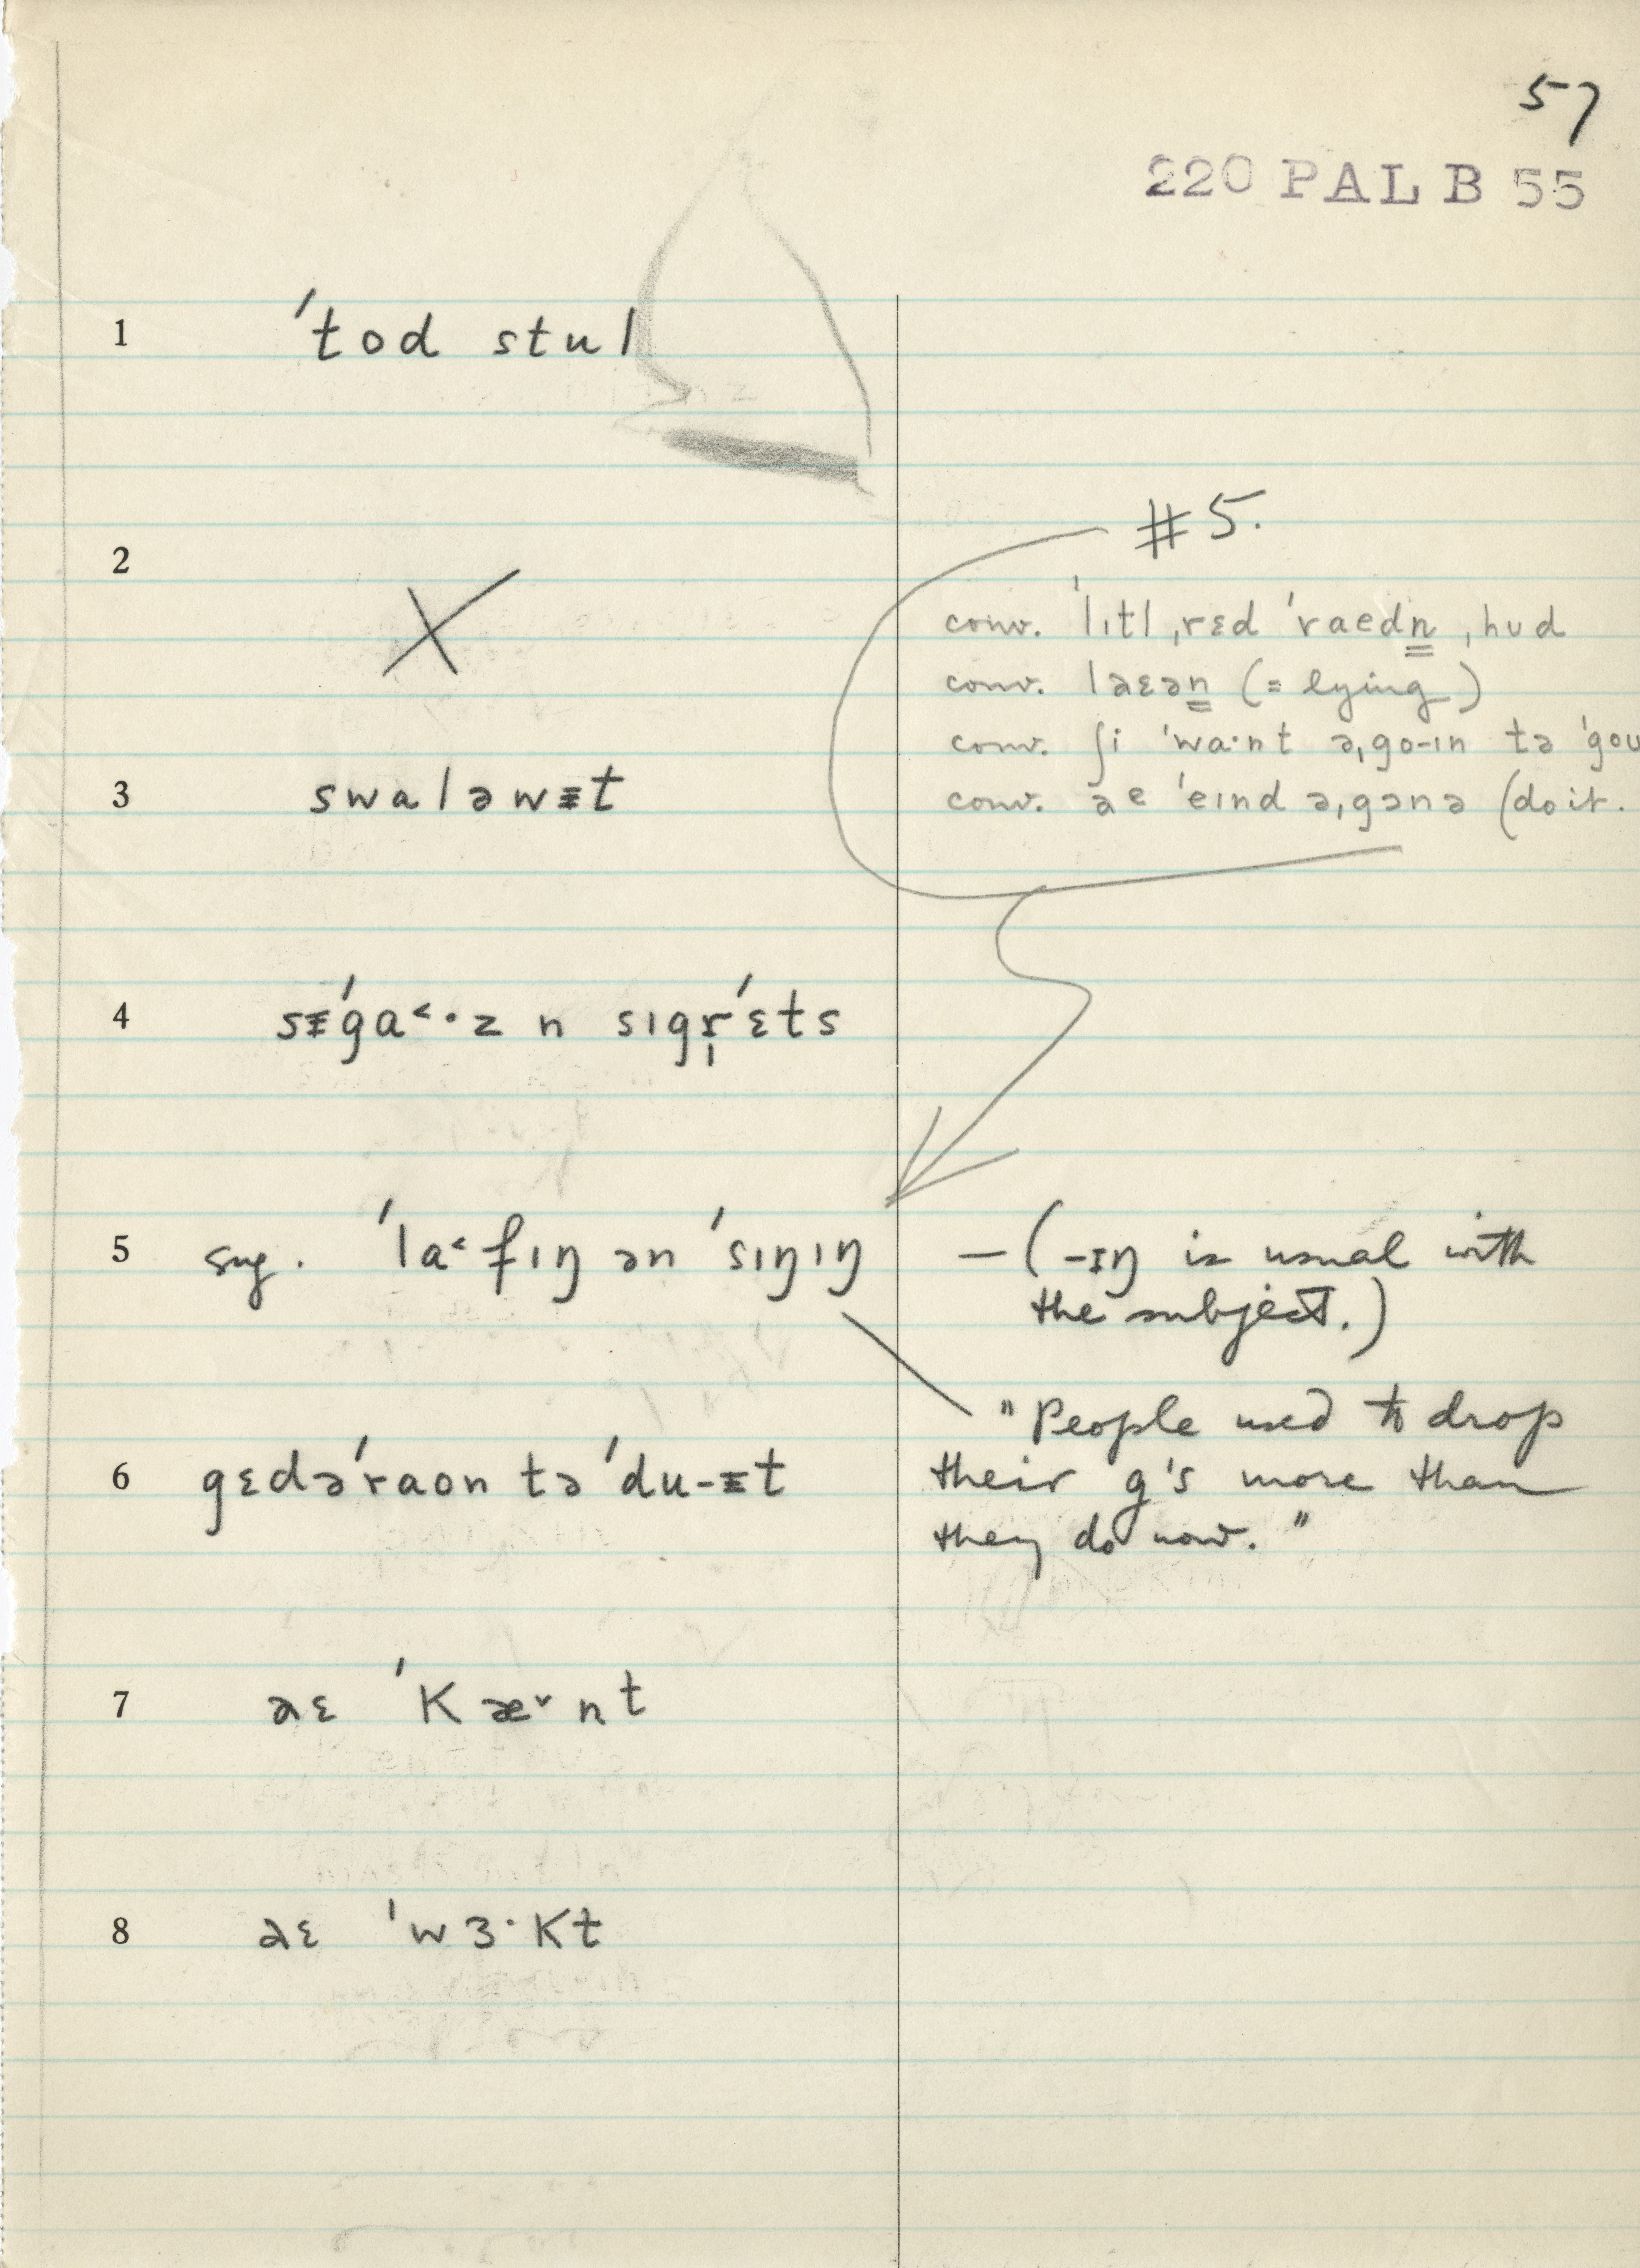 57
220 PAL B 55
1 ˈtod stul
2 X
#5.
conv. ˈlɪtl ˌrɛd ˈraedn̳ ˌhʊd
conv. laɛən̳ (= lying)
conv. ʃi ˈwa·nt əˌgo-ɪn tə ˈgoʊ
3 swaləwɪ̵t
conv. ae ˈeɪnd əˌgənə (do it.
4 sɪ̵ˈga˂·z n sɪgr̩ˈɛts
5 sug. ˈla˂fɪŋ ən ˈsɪŋɪŋ — (-ɪŋ is usual with
the subject.)
"People used to drop
6 gɛdəˈraon tə ˈdu-ɪ̵t
their g's more than
they do now."
7 aɛ ˈkæ˅nt
8 aɛ ˈwɜ·kt